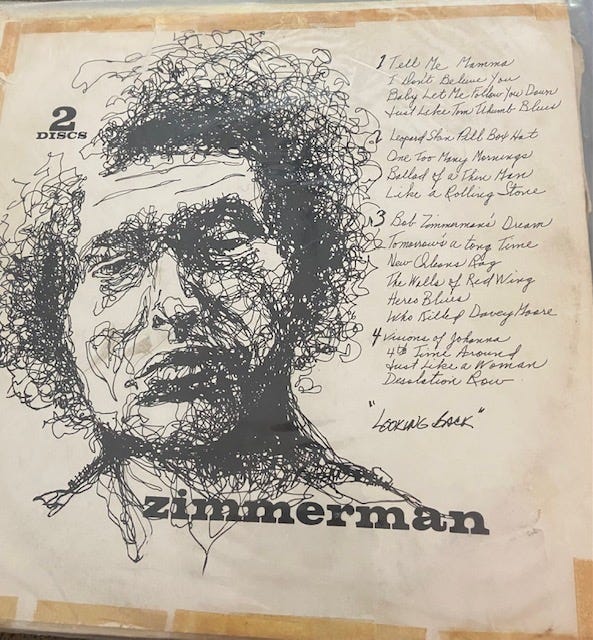 2
DISCS
1 Tell Me Momma
I Don't Believe You
Baby Let Me Follow You Down
Just Like Tom Thumb Blues
2 Leopard Skin Pill Box Hat
One Too Many Mornings
Ballad of a Thin Man
Like a Rolling Stone
3 Bob Zimmerman's Dream
Tomorrow's a Long Time
New Orleans Rag
The Walls of Red Wing
Heros Blues
Who Killed Davey Moore
4 Visions of Johanna
4th Time Around
Just Like a Woman
Desolation Row
"LOOKING BACK"
zimmerman